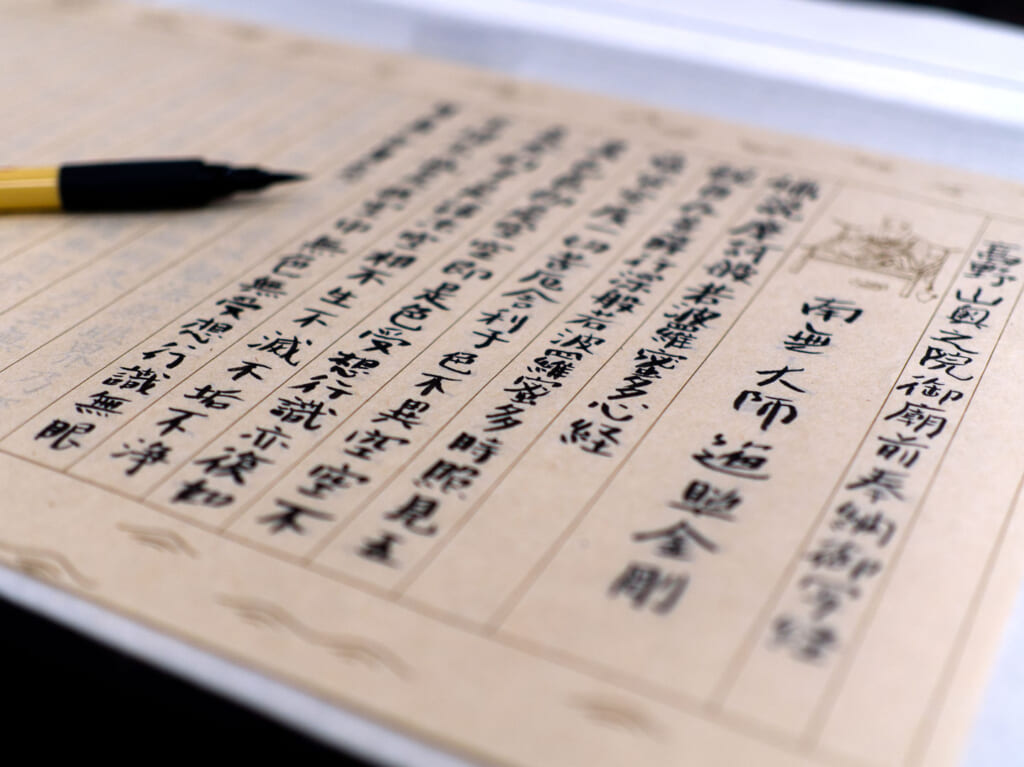 高野山奥之院御廟前奉納御写経
南無大師遍照金剛
佛説摩訶般若波羅蜜多心経
観自在菩薩行深般若波羅蜜多時照見五
蘊皆空度一切苦厄舎利子色不異空空不
異色色即是空空即是色受想行識亦復如
是舎利子是諸法空相不生不滅不垢不浄
不増不減是故空中無色無受想行識無眼